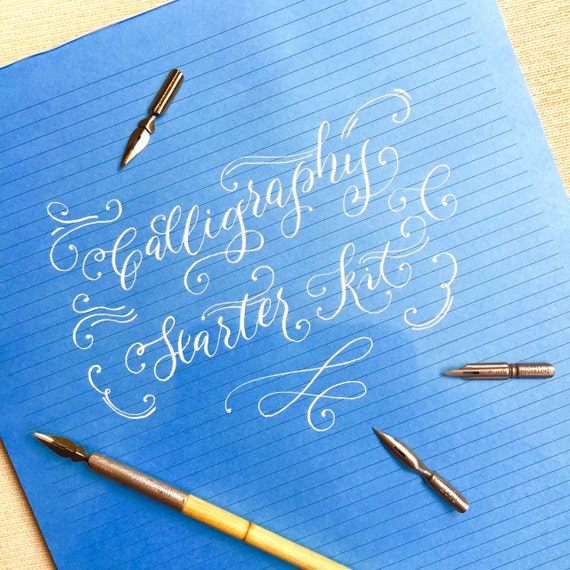 Calligraphy
Starter Kit